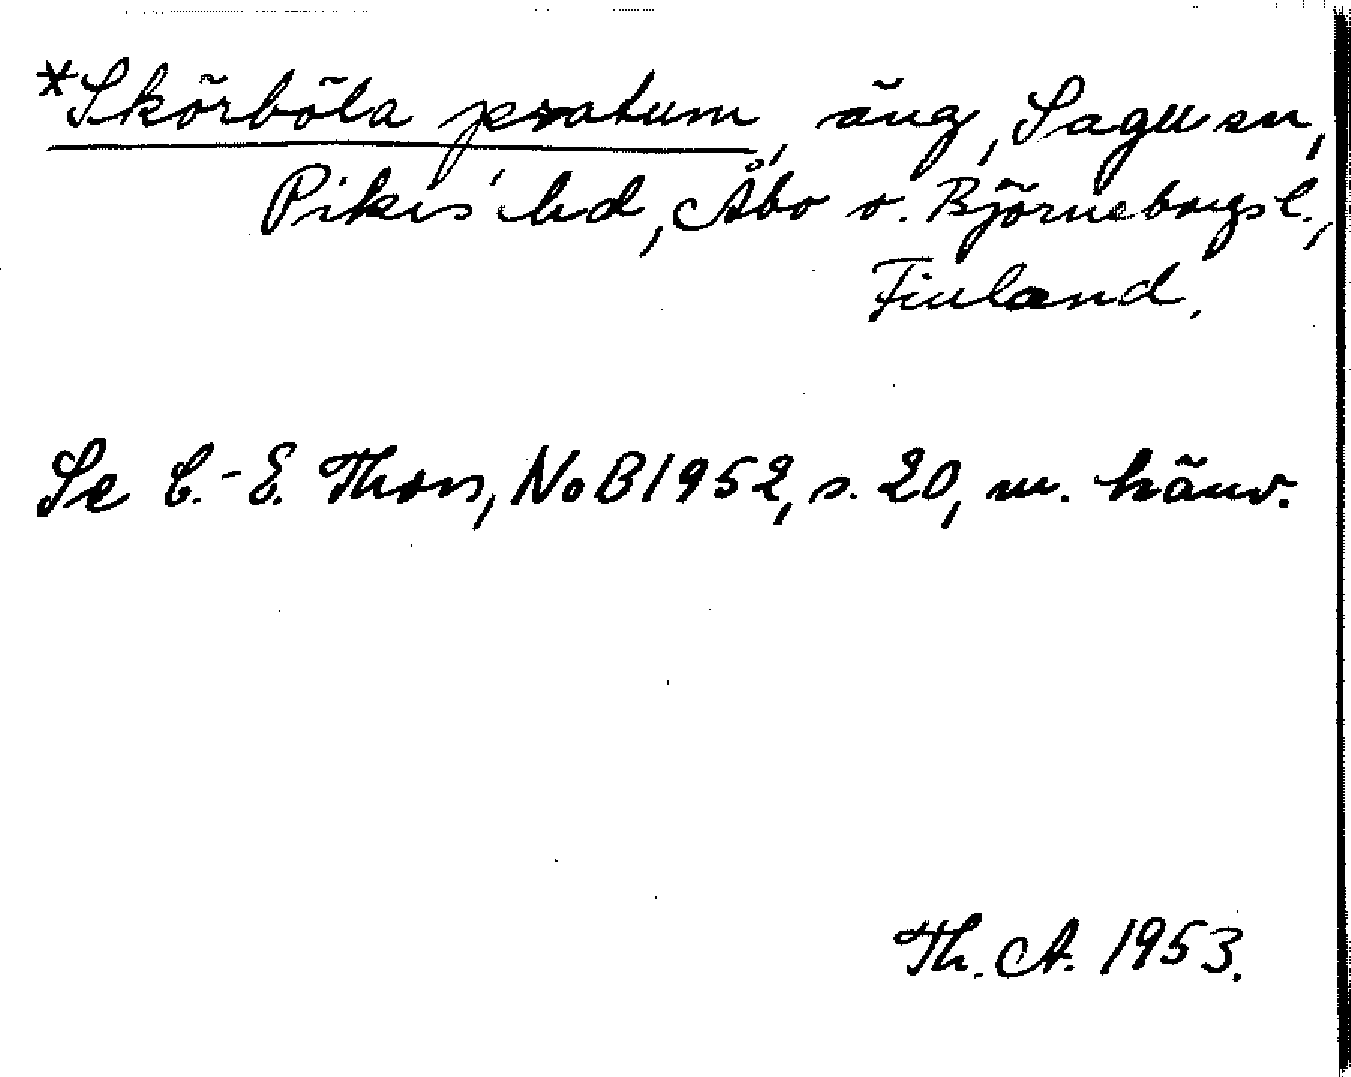 *Skörböla pratum, äng, Sagu sn,
Pikis hd, Åbo o. Björneborgs l.,
Finland.
Se C.-E. Thors, NoB 1952, s. 20, m. hänv.
Th. A. 1953.